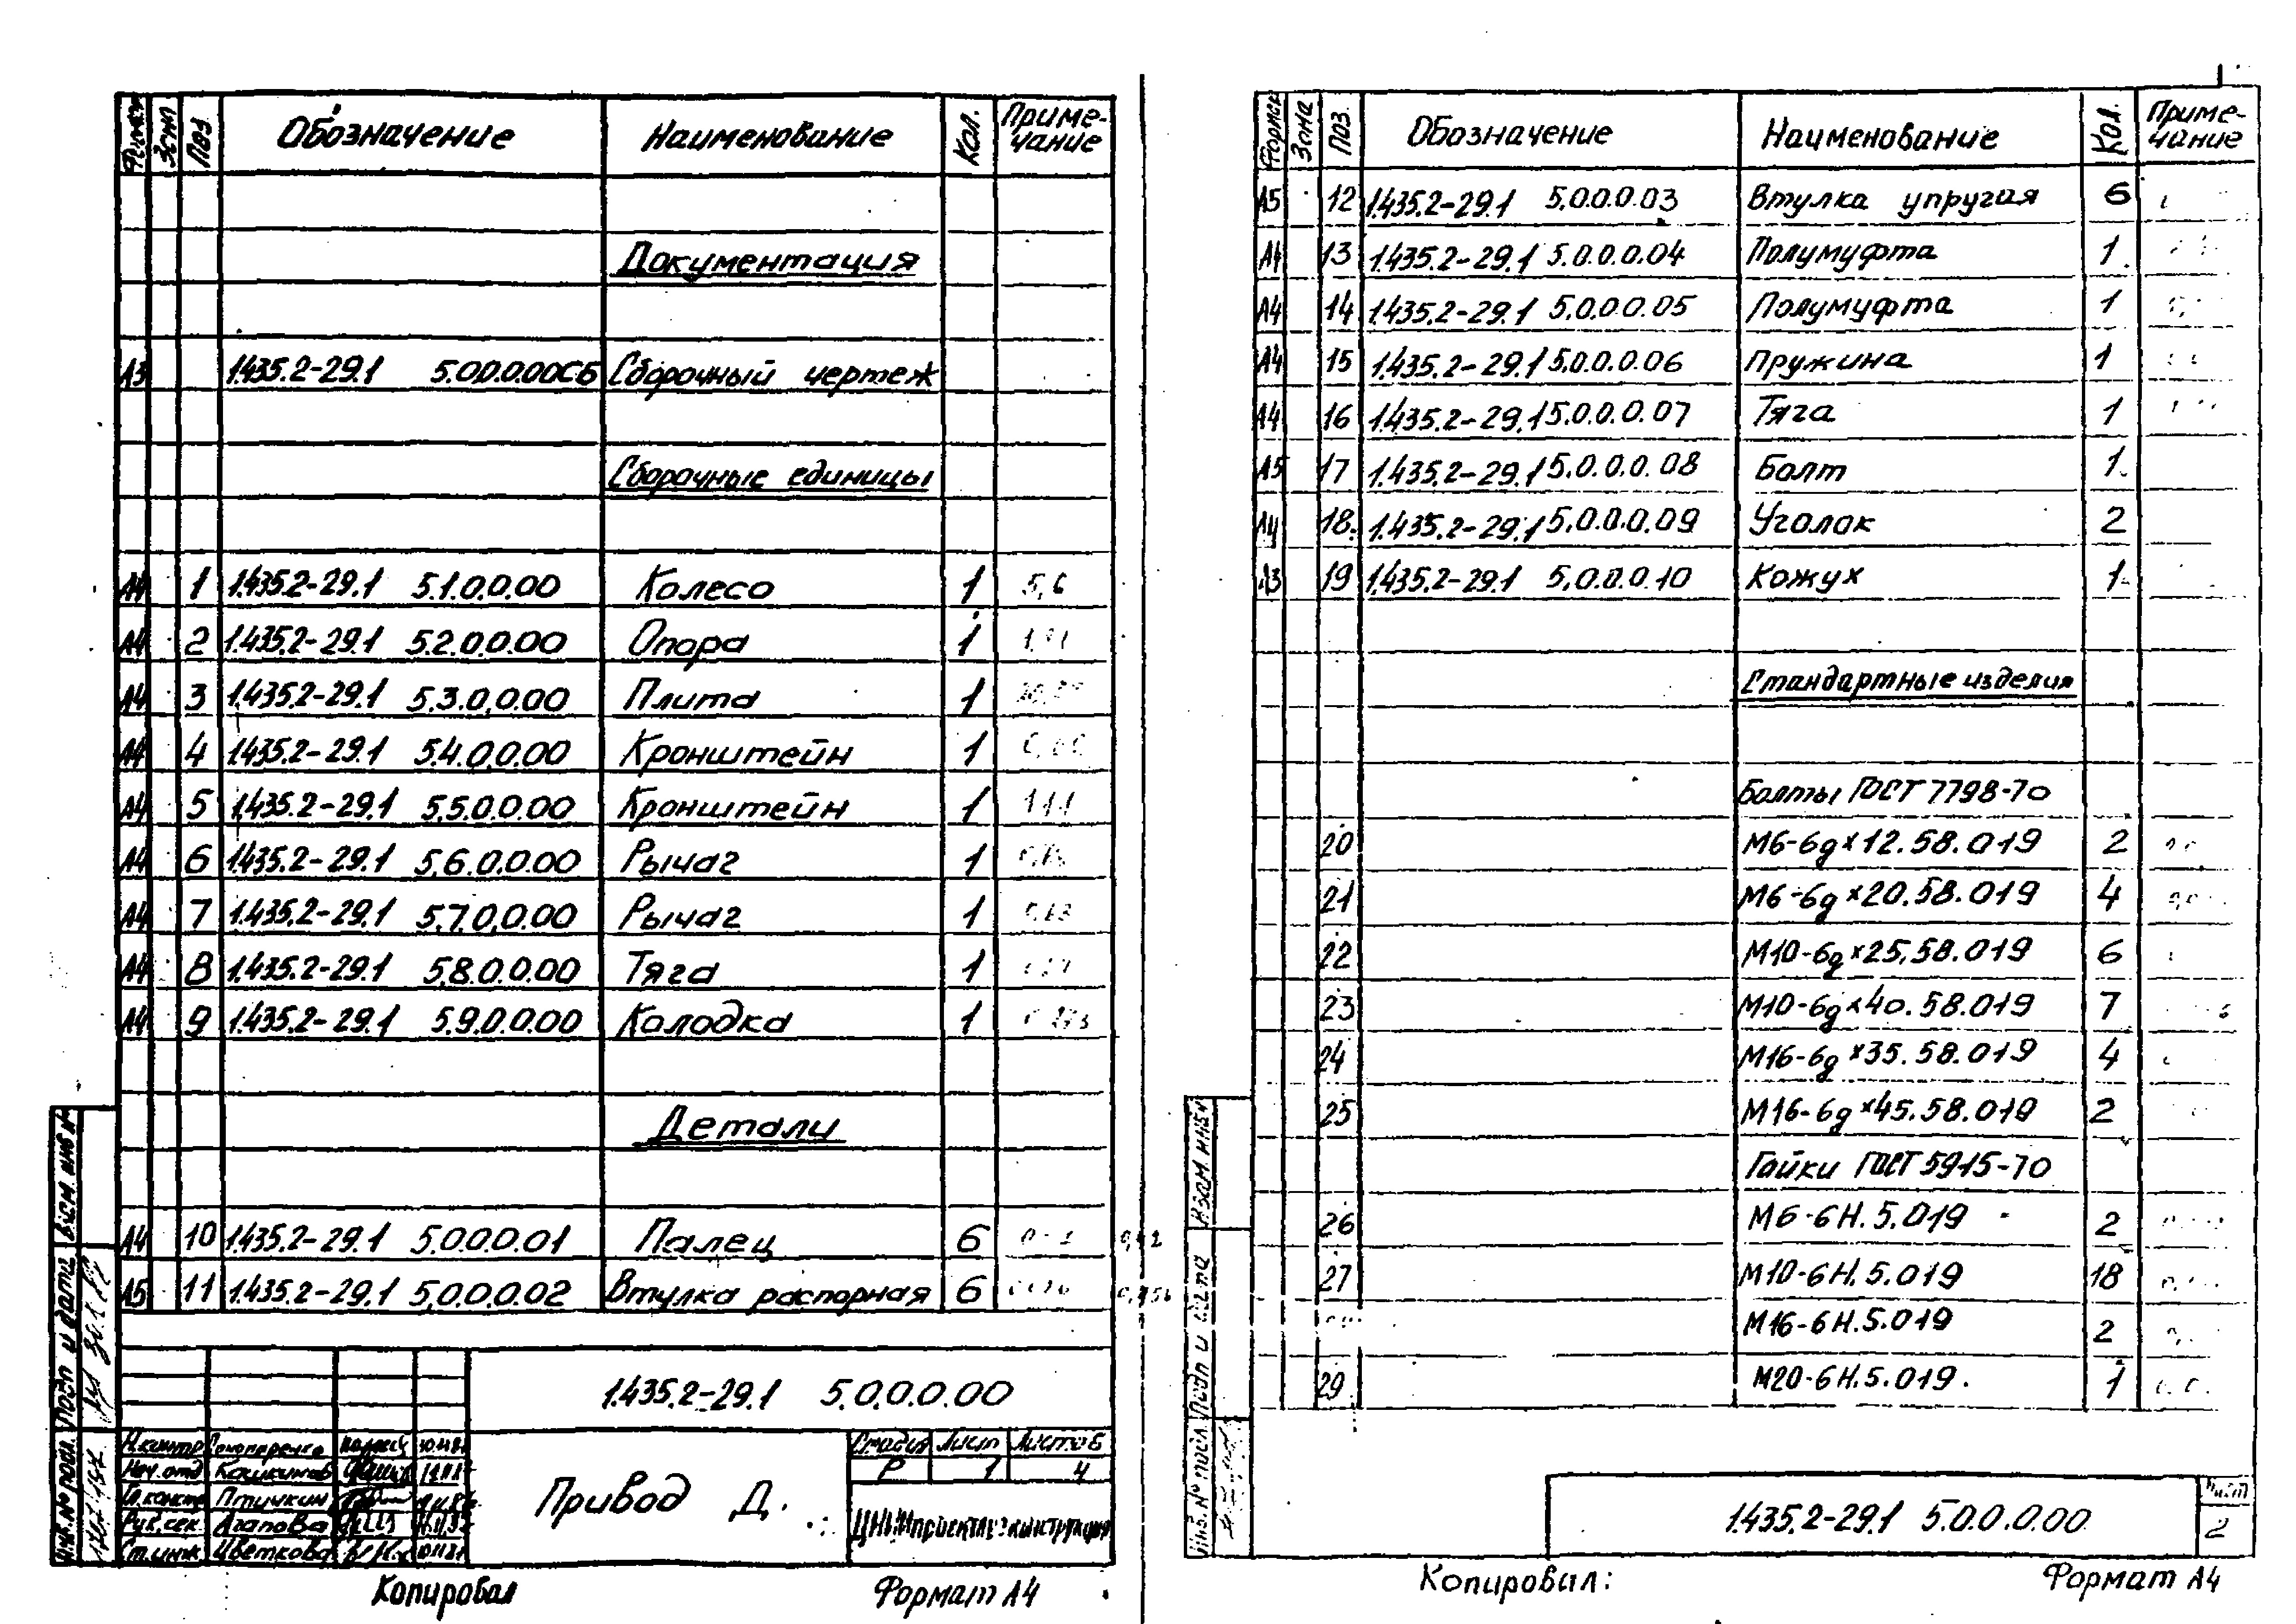 Формат Зона Поз. Обозначение Наименование Кол. Примечание
Документация
А3 1.435.2-29.1 5.0.0.0.00СБ Сборочный чертеж
Сборочные единицы
А4 1 1.435.2-29.1 5.1.0.0.00 Колесо 1 5,6
А4 2 1.435.2-29.1 5.2.0.0.00 Опора 1
А4 3 1.435.2-29.1 5.3.0.0.00 Плита 1
А4 4 1.435.2-29.1 5.4.0.0.00 Кронштейн 1
А4 5 1.435.2-29.1 5.5.0.0.00 Кронштейн 1
А4 6 1.435.2-29.1 5.6.0.0.00 Рычаг 1
А4 7 1.435.2-29.1 5.7.0.0.00 Рычаг 1
А4 8 1.435.2-29.1 5.8.0.0.00 Тяга 1
А4 9 1.435.2-29.1 5.9.0.0.00 Колодка 1
Детали
А4 10 1.435.2-29.1 5.0.0.0.01 Палец 6
А5 11 1.435.2-29.1 5.0.0.0.02 Втулка распорная 6
1.435.2-29.1 5.0.0.0.00
Н.контр
Нач.отд Кашкинов
Гл.констр Птичкин
Рук.сек. Агапова
Ст.инж Цветкова
Привод Д.
Стадия Лист Листов
Р 1 4
ЦНИИпроектлегконструкция
Инв.№ подл. Подп и дата Взам. инв №
Копировал Формат А4
Формат Зона Поз. Обозначение Наименование Кол. Примечание
А5 12 1.435.2-29.1 5.0.0.0.03 Втулка упругая 6
А4 13 1.435.2-29.1 5.0.0.0.04 Полумуфта 1
А4 14 1.435.2-29.1 5.0.0.0.05 Полумуфта 1
А4 15 1.435.2-29.1 5.0.0.0.06 Пружина 1
А4 16 1.435.2-29.1 5.0.0.0.07 Тяга 1
А5 17 1.435.2-29.1 5.0.0.0.08 Болт 1
А4 18 1.435.2-29.1 5.0.0.0.09 Уголок 2
А3 19 1.435.2-29.1 5.0.0.0.10 Кожух 1
Стандартные изделия
Болты ГОСТ 7798-70
20 М6-6g×12.58.019 2
21 М6-6g×20.58.019 4
22 М10-6g×25.58.019 6
23 М10-6g×40.58.019 7
24 М16-6g×35.58.019 4
25 М16-6g×45.58.019 2
Гайки ГОСТ 5915-70
26 М6-6Н.5.019 2
27 М10-6Н.5.019 18
М16-6Н.5.019 2
29 М20-6Н.5.019. 1
Инв.№ подл Подп и дата Взам инв №
1.435.2-29.1 5.0.0.0.00
Лист
2
Копировал: Формат А4